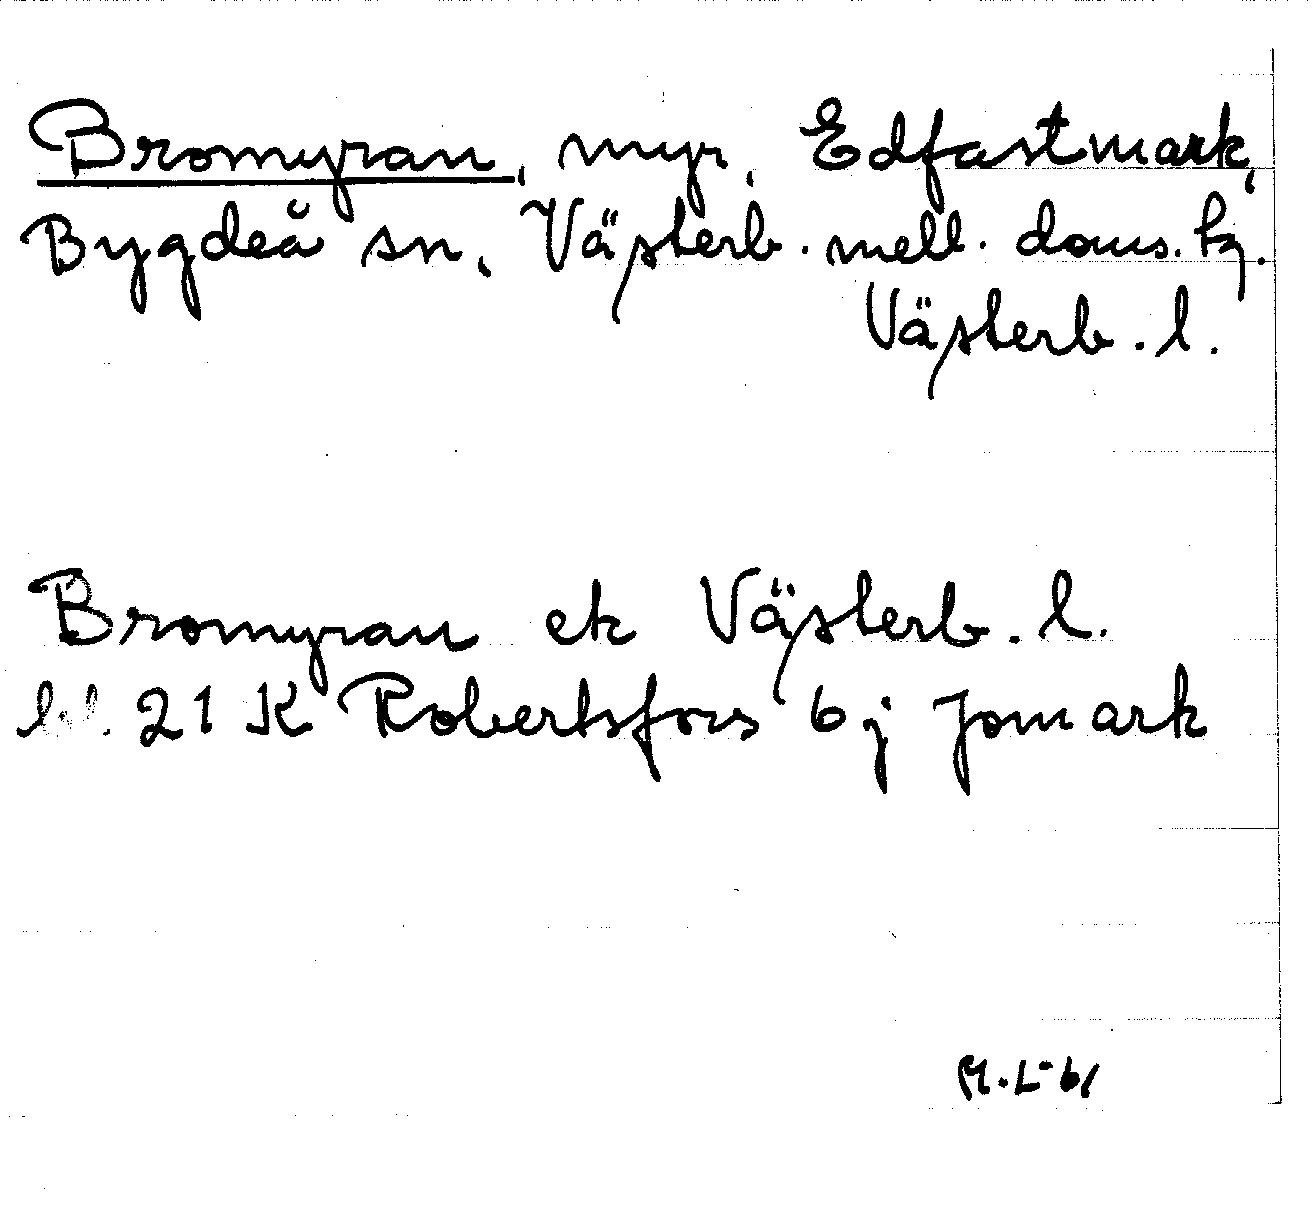 Bromyran, myr, Edfastmark,
Bygdeå sn, Västerb. mell. doms. tg.
Västerb. l.
Bromyran ek Västerb. l.
bl. 21 K Robertsfors 6 j Jomark
M.L-61